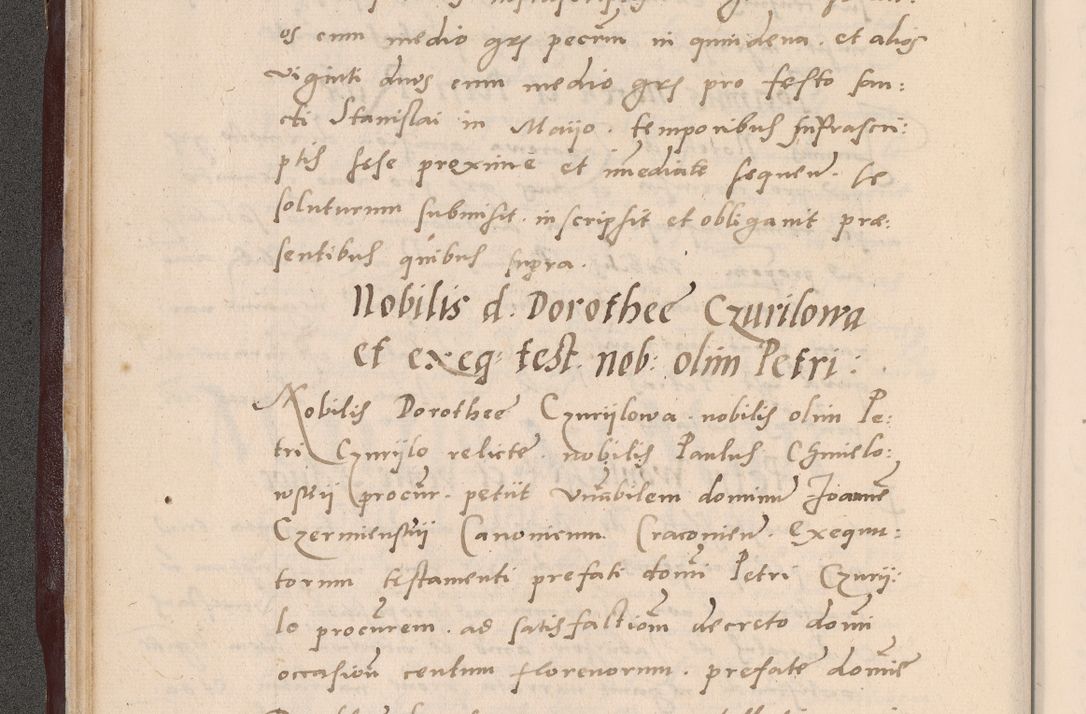 os cum medio grs pecun in quindena. et alios
viginti duos cum medio grs pro festo san:
cti Stanislai in Maijo. temporibus infrascri:
ptis sese proxime et immediate sequen. se
soluturum submisit. inscripsit et obligauit præ:
sentibus quibus supra.
Nobilis d. Dorothee Czurilowa
et exeq: test. nob: olim Petri:
Nobilis Dorothee Czurijlowa. nobilis olim Pe:
tri Czurijlo relicte. nobilis Paulus Chmielo:
wskij procur. petiit Vnabilem dominum Joanne
Czermienskij Canonicum Cracouien. Exequu:
torum testamenti prefati domi Petri Czurij:
lo procurem. ad satisfactiom decreto domi
occasion centum florenorum. prefate domine